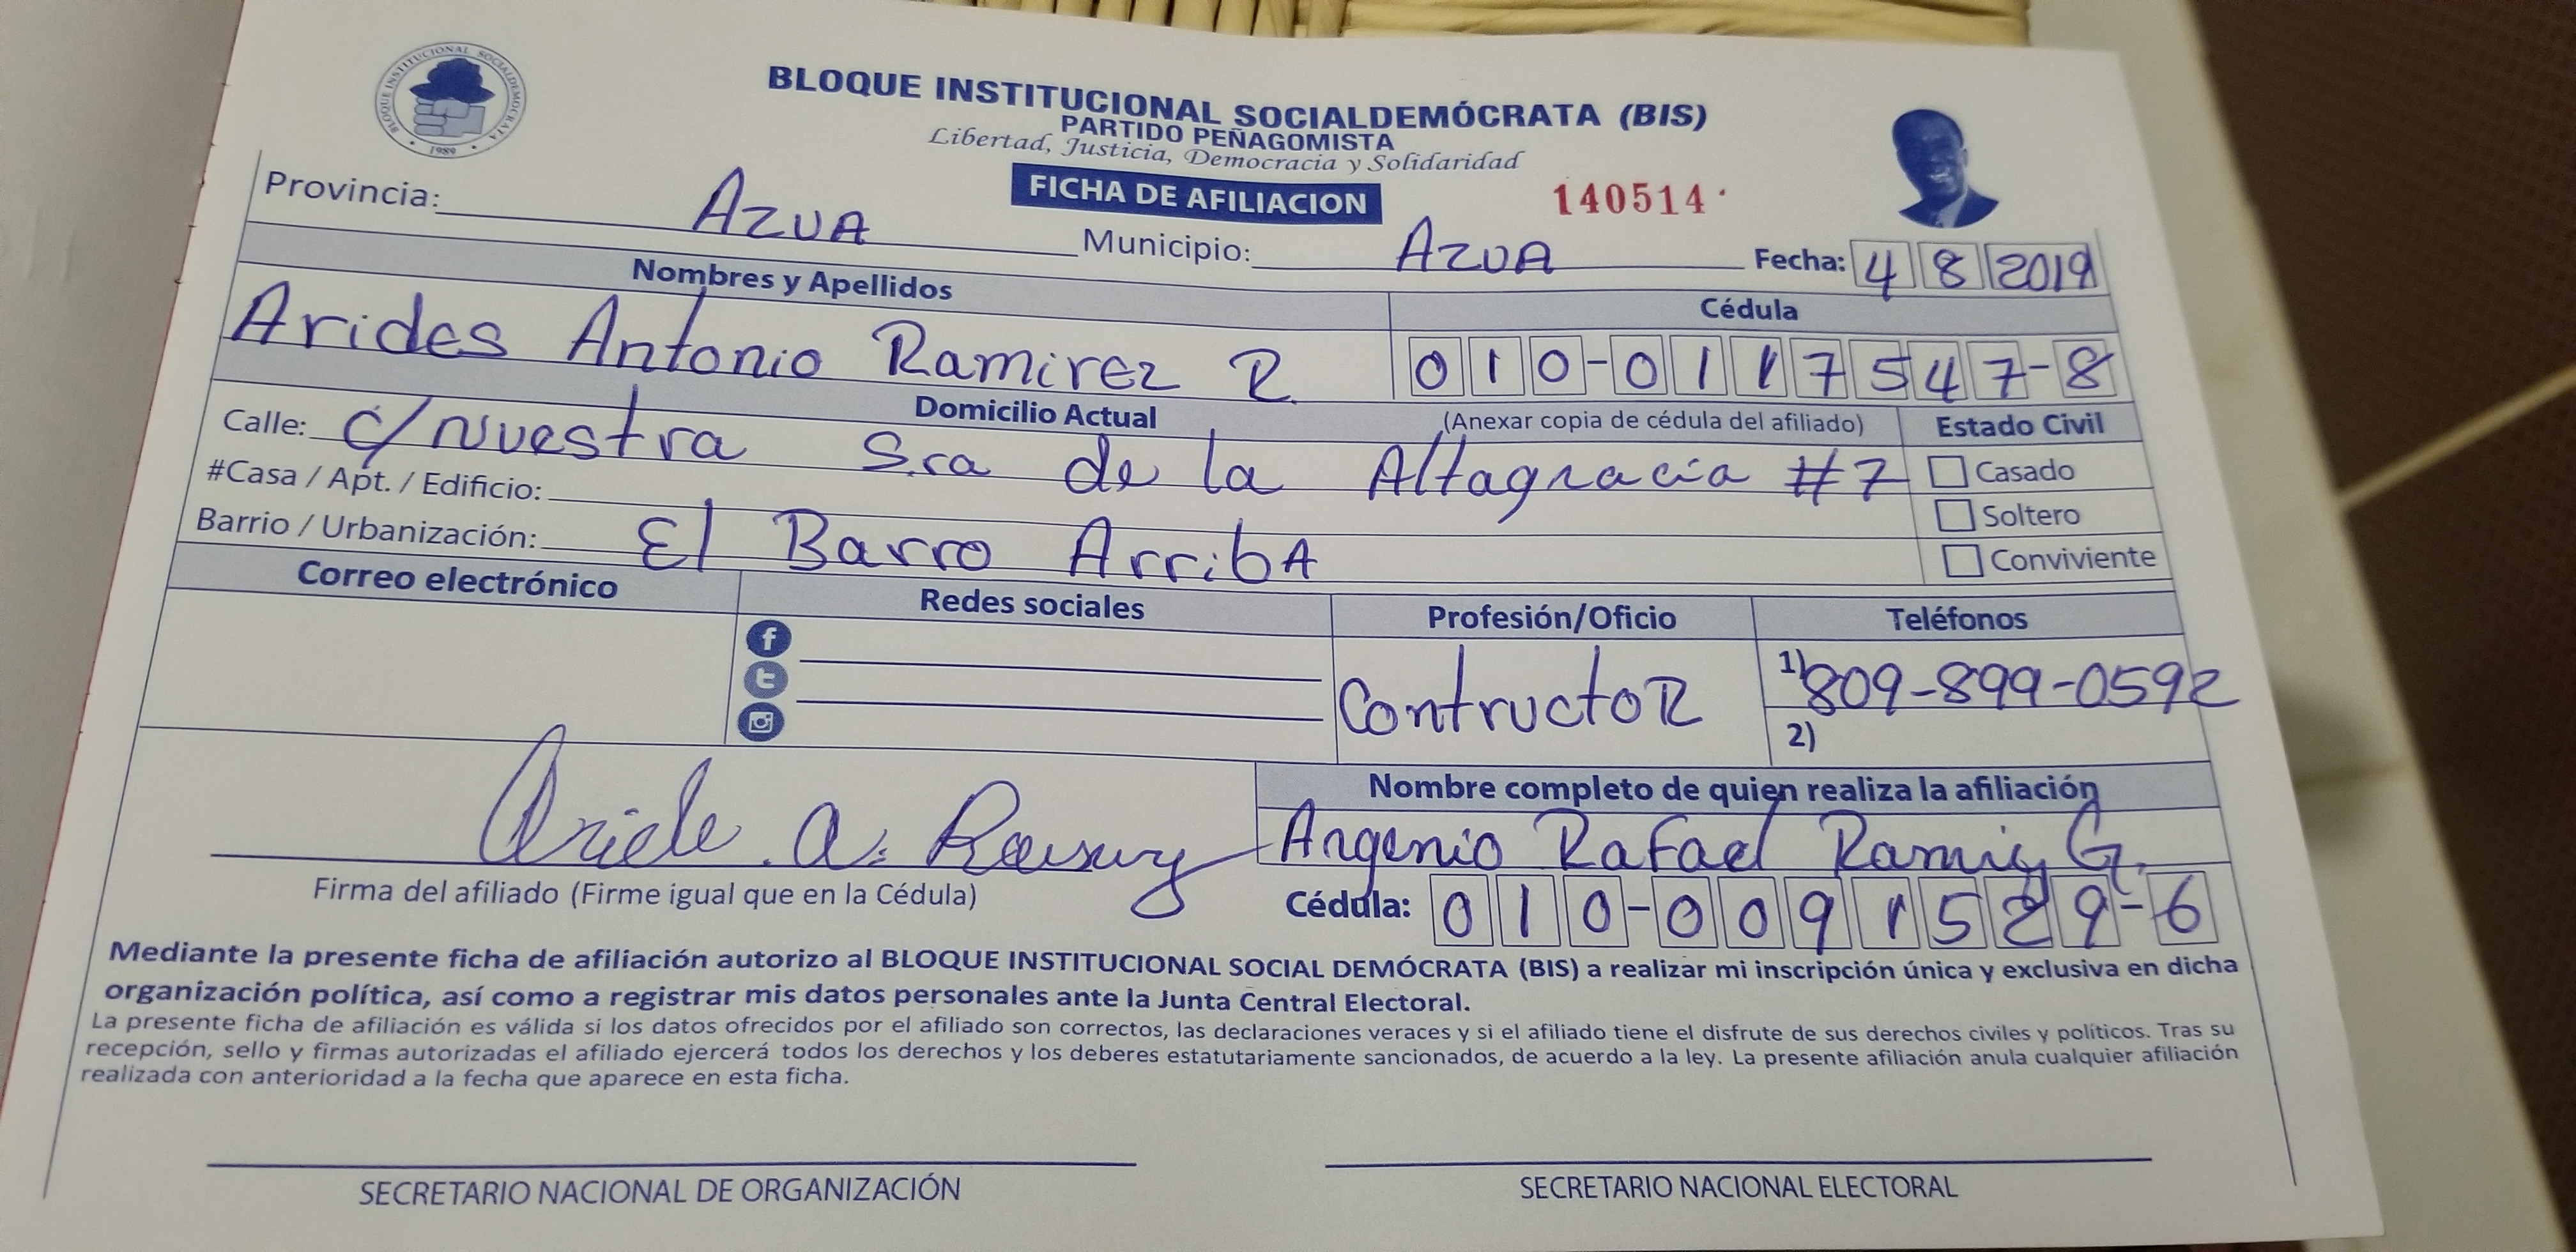 BLOQUE INSTITUCIONAL SOCIALDEMÓCRATA
1989
BLOQUE INSTITUCIONAL SOCIALDEMÓCRATA (BIS)
PARTIDO PEÑAGOMISTA
Libertad, Justicia, Democracia y Solidaridad
FICHA DE AFILIACION
140514
Provincia: AZUA Municipio: AZUA Fecha: 4 8 2019
Nombres y Apellidos Cédula
Arides Antonio Ramirez R 010-0117547-8
Domicilio Actual (Anexar copia de cédula del afiliado) Estado Civil
Calle: c/nuestra Sra de la Altagracia #7 Casado
#Casa / Apt. / Edificio: Soltero
Barrio / Urbanización: El Barro ArribA Conviviente
Correo electrónico Redes sociales Profesión/Oficio Teléfonos
ContructoR 1) 809-899-0592
2)
Nombre completo de quien realiza la afiliación
Argenio Rafael G.
Firma del afiliado (Firme igual que en la Cédula) Cédula: 010-0091529-6
Mediante la presente ficha de afiliación autorizo al BLOQUE INSTITUCIONAL SOCIAL DEMÓCRATA (BIS) a realizar mi inscripción única y exclusiva en dicha
organización política, así como a registrar mis datos personales ante la Junta Central Electoral.
La presente ficha de afiliación es válida si los datos ofrecidos por el afiliado son correctos, las declaraciones veraces y si el afiliado tiene el disfrute de sus derechos civiles y políticos. Tras su
recepción, sello y firmas autorizadas el afiliado ejercerá todos los derechos y los deberes estatutariamente sancionados, de acuerdo a la ley. La presente afiliación anula cualquier afiliación
realizada con anterioridad a la fecha que aparece en esta ficha.
SECRETARIO NACIONAL DE ORGANIZACIÓN SECRETARIO NACIONAL ELECTORAL